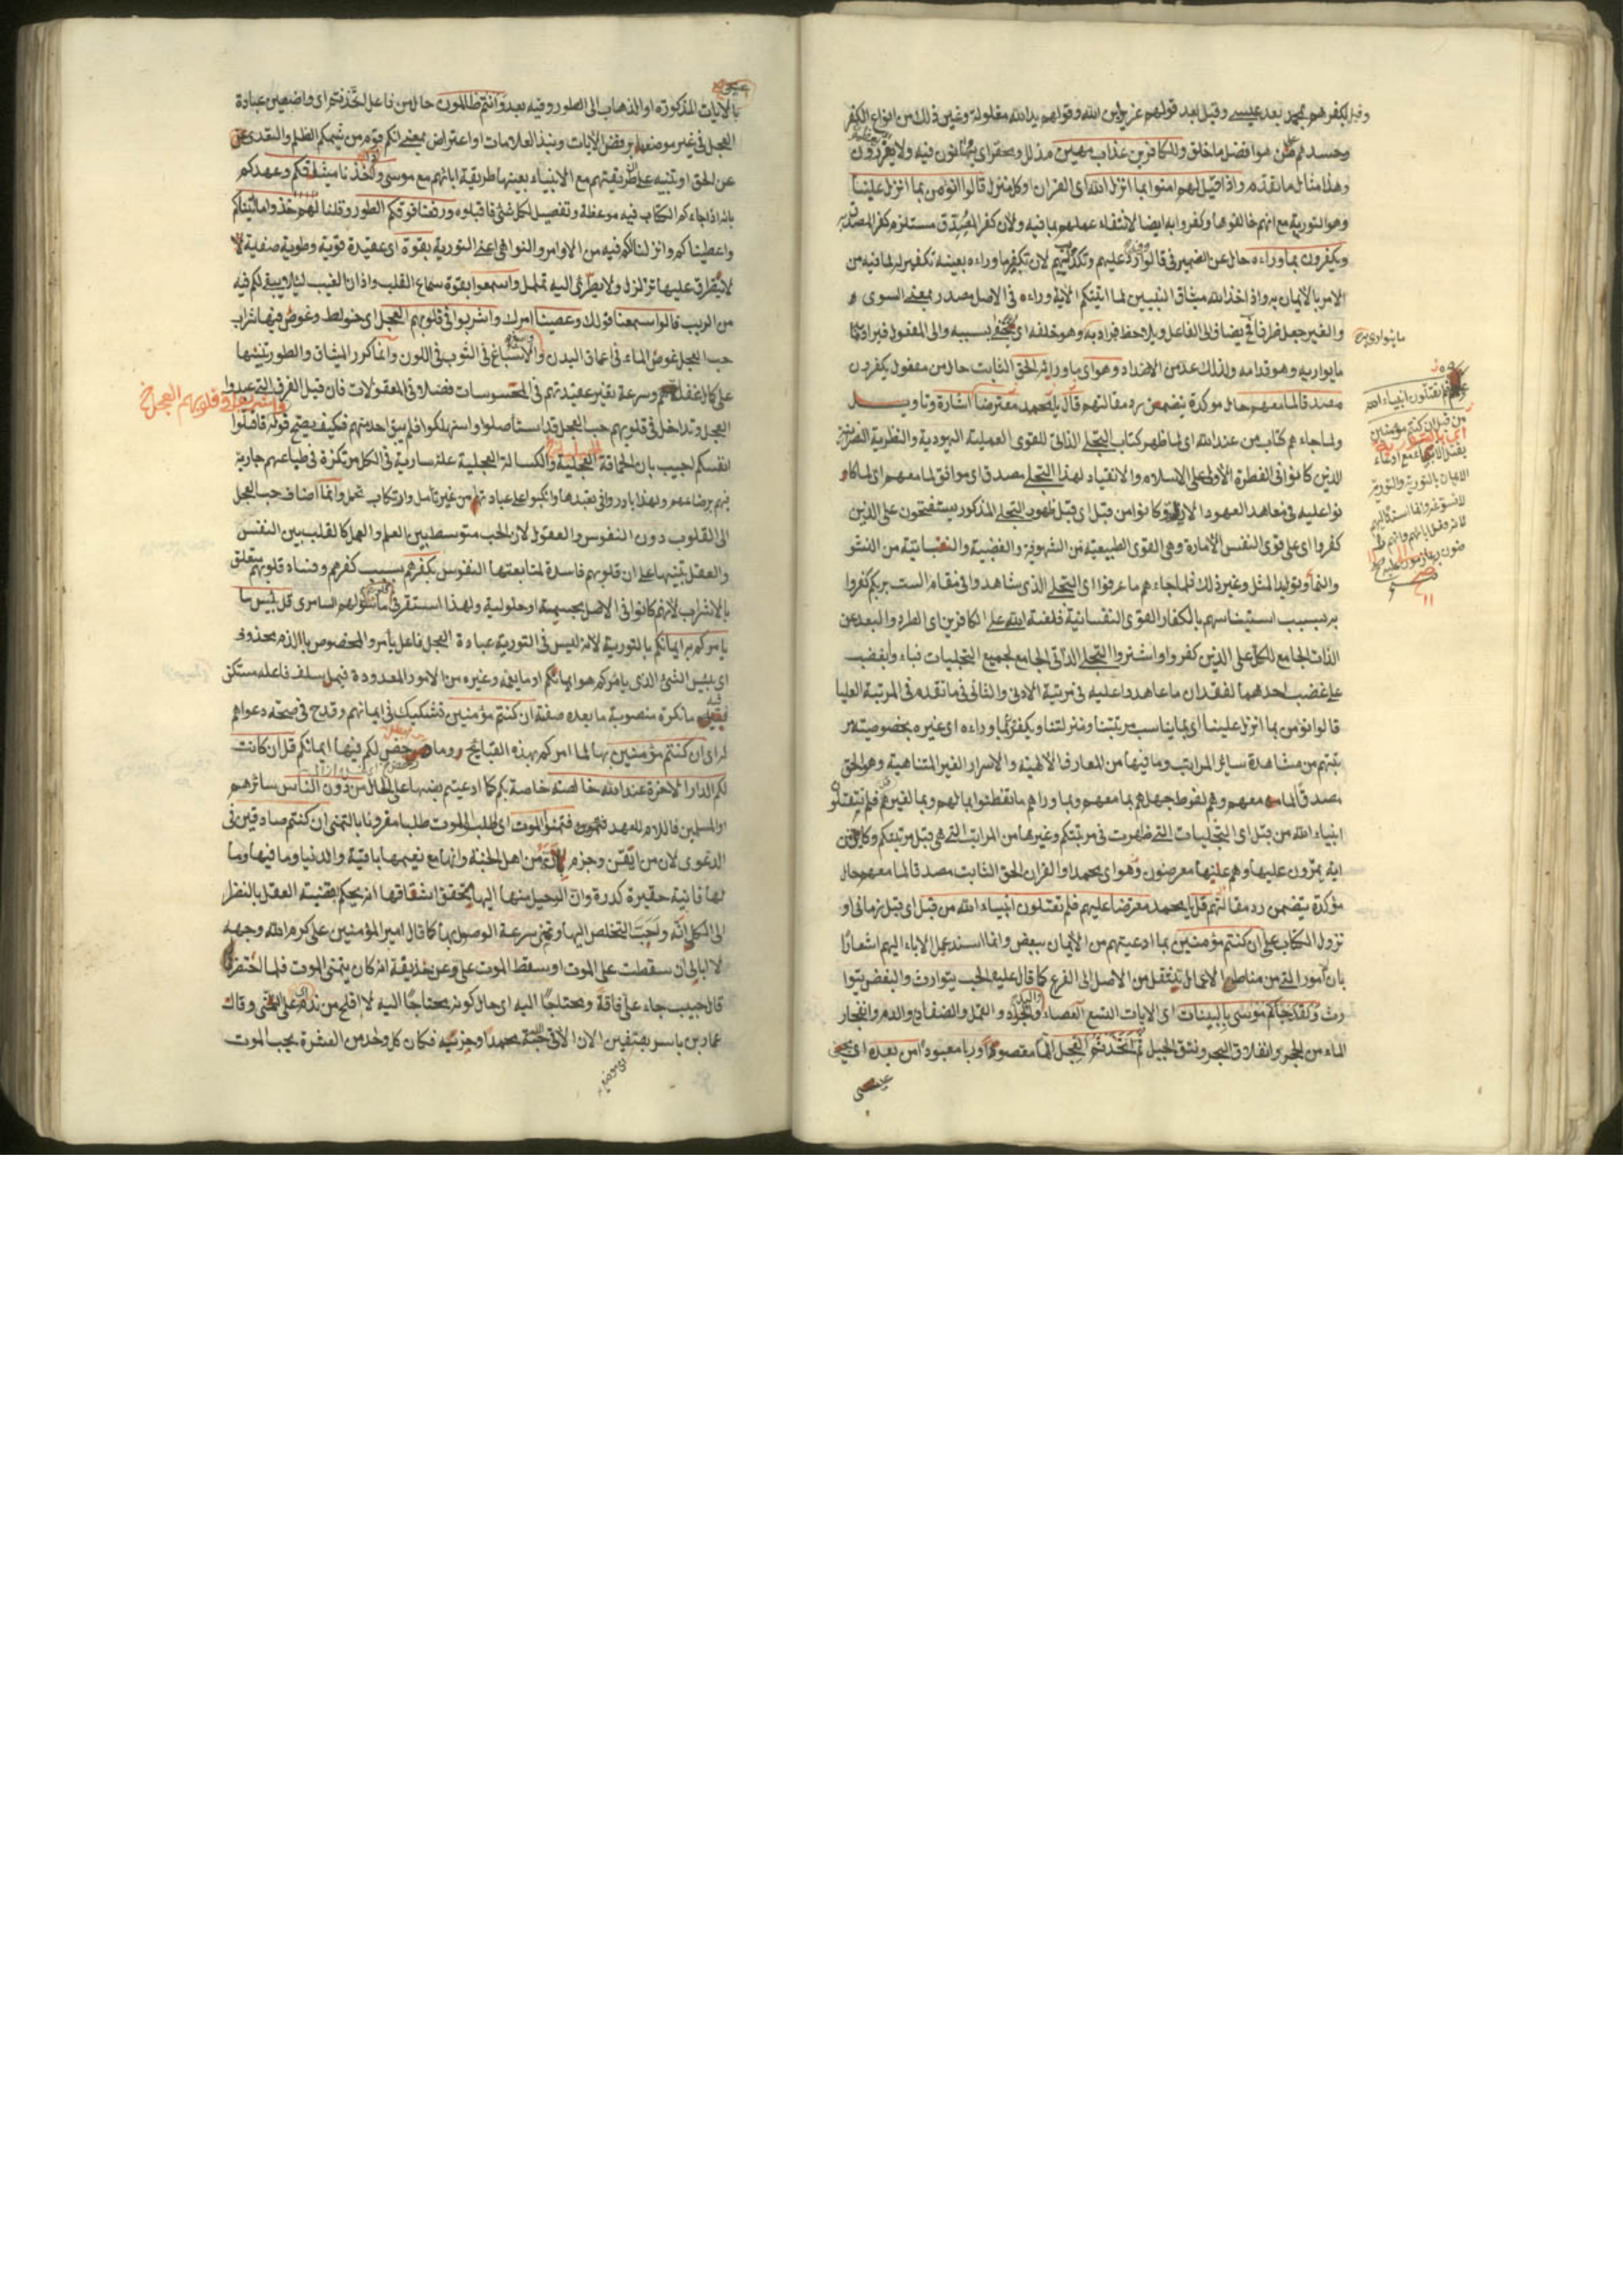 وقيل لكفرهم بمحمد بعد عيسى وقيل بعد قولهم عزير ابن الله وقولهم يد الله مغلولة وغير ذلك من انواع الكفر
وحسدهم على من هو افضل ما خلق وللكافرين عذاب مهين مذلل ومحقر اى يهانون فيه ولا يعززون
وهذا مثال ما تقدم واذا قيل لهم امنوا بما انزل الله اى القران او كل منزل قالوا نؤمن بما انزل علينا
وهو التورية مع انهم خالفوها وكفروا به ايضا لانتفاء عملهم بما فيه ولان كفر المصدق مستلزم كفر المصدق به
ويكفرون بما وراءه حال عن الضمير فى قالوا رد عليهم وتكذيبهم لان تكفير ما وراءه بعينه تكفير له لما فيه من
الامر بالايمان به واذ اخذ الله ميثاق النبيين لما اتيتكم الاية وراء فى الاصل مصدر بمعنى السوى و
والغير جعل ظرفا يضاف الى الفاعل ويلاحظ فيراد به وهو خلفه اى بسببه والى المفعول فيراد به
ما يواريه وهو قدامه ولذلك عد من الاضداد وهو اى ما وراءه الحق الثابت حال من مفعول يكفرون
مصدقا لما معهم حال موكدة يتضمن رد مقالتهم قال يا محمد معترضا اشارة وتاويل
ولما جاءهم كتاب من عند الله اى لما ظهر كتاب التجلى الذاتى للقوى العملية اليهودية والنظرية النصرانية
الذين كانوا فى الفطرة الاولى على الاسلام والانقياد لهذا التجلى مصدق اى موافق لما معهم اى لما كا
نوا عليه فى معاهد العهود الازلية وكانوا من قبل اى قبل ظهور التجلى المذكور يستفتحون على الذين
كفروا اى على قوى النفس الامارة وهى القوى الطبيعية من الشهوية والغضبية والنفسانية من النشو
والنما وتوليد المثل وغير ذلك فلما جاءهم ما عرفوا اى التجلى الذى شاهدوا فى مقام الست بربكم كفروا
به بسبب استيناسهم بالكفار القوى النفسانية فلعنة الله على الكافرين اى الطرد والبعد عن
الذات الجامع للكل على الذين كفروا واشتروا التجلى الذاتى الجامع لجميع التجليات فباء وابغضب
على غضب احدهما لفقدان ما عاهدوا عليه فى مرتبة الادنى والثانى فى ما تقدم فى المرتبة العليا
قالوا نؤمن بما انزل علينا اى بما يناسب مرتبتنا ومنزلتنا ويكفرون بما وراءه اى غيره بخصوصية مر
تبتهم من مشاهدة سائر المراتب وما فيها من المعارف الالهية والاسرار الغير المتناهية وهو الحق
مصدقا لما معهم وهم لفرط جهلهم بما معهم وبما وراهم ما تفطنوا بما لهم وبما لغيرهم فلم تقتلون
انبياء الله من قبل اى التجليات التى ظهرت فى مرتبتكم وغيرها من المراتب التى هى قبل مرتبتكم وكاين من
اية يمرون عليها وهم عنها معرضون وهو اى محمد او القران الحق الثابت مصدقا لما معهم حال
مؤكدة يتضمن رد مقالتهم قل يا محمد معترضا عليهم فلم تقتلون انبياء الله من قبل اى قبل زمانى او
نزول الكتاب على ان كنتم مؤمنين بما ادعيتم من الايمان ببعض وانما اسند عمل الاباء اليهم اشعارا
بان امور التى من مناط الاعمال ينتقل من الاصل الى الفرع كما قال عليه الحب يتوارث والبغض يتوا
رث ولقد جاءكم موسى بالبينات اى الايات التسع العصاء واليد والجراد والقمل والضفادع والدم وانفجار
الماء من الحجر وانفلاق البحر ونتق الجبل ثم اتخذتم العجل الها مقصودا وربا معبودا من بعده اى مجئ
عيسى
ما يتوارى به
فلم تقتلون انبياء الله
من قبل ان كنتم مؤمنين
الايمان بالتورية والتورية
بالايات المذكورة او الذهاب الى الطور وفيه بعد وانتم ظالمون حال من فاعل اتخذتم اى واضعين عبادة
العجل فى غير موضعها برفض الايات ونبذ العلامات او اعتراض بمعنى انكم قوم من شيمكم الظلم والتعدى عن
عن الحق او تنبيه على طريقتهم مع الانبياء بعينها طريقة ابائهم مع موسى واذ اخذنا ميثاقكم وعهدكم
بانه اذا جاءكم الكتاب فيه موعظة وتفصيل لكل شئ فاقبلوه ورفعنا فوقكم الطور وقلنا لهم خذوا ما اتيناكم
واعطيناكم وانزلنا لكم فيه من الاوامر والنواهى اعنى التورية بقوة اى عقيدة قوية وطوية صفية لا
لا يتطرق عليها تزلزل ولا يطرئ اليه تململ واسمعوا بقوة سماع القلب واذان الغيب لئلا يبقى لكم فيه
من الريب قالوا سمعنا قولك وعصينا امرك واشربوا فى قلوبهم العجل اى خولط وغوص فيها شراب
حب العجل غوص الماء فى اعماق البدن والانصباغ فى الثوب فى اللون وانما كرر الميثاق والطور تنبيها
على كمال غفلتهم وسرعة تغير عقيدتهم فى المحسوسات فضلا وفى المعقولات فان قيل الفرق التى عبدوا
واشربوا فى قلوبهم العجل
العجل وتداخل فى قلوبهم حب العجل قد استأصلوا واستهلكوا فلم يبق احد منهم فكيف يصح قوله فاقتلوا
انفسكم اجيب بان الحماقة العجلية والكسالة العجلية علة سارية فى الكل مرتكزة فى طباعهم جارية
فيهم برضاعهم ولهذا بادروا فى تعبدها وانكبوا على عبادتها من غير تأمل وارتكاب تحمل وانما اضاف حب العجل
الى القلوب دون النفوس والعقول لان الحب متوسط بين العلم والعمل كالقلب بين النفس
والعقل تنبيها على ان قلوبهم فاسدة لمتابعتها النفوس بكفرهم بسبب كفرهم وفساد قلوبهم متعلق
بالاشراب لانهم كانوا فى الاصل مجسمية او حلولية ولهذا استقر فى قلوبهم ما سولهم السامرى قل بئس ما
يامركم به ايمانكم بالتورية لانه ليس فى التورية عبادة العجل فاعل يأمر والمخصوص بالذم محذوف
اى بئس الشئ الذى يامركم هو ايمانكم او ما يعمه وغيره من الامور المعدودة فيما سلف فاعله مستكن
فيه ما نكرة منصوبة ما بعده صفة ان كنتم مؤمنين تشكيك فى ايمانهم وقدح فى صحة دعواهم
له اى ان كنتم مؤمنين بها لما امركم بهذه القبايح وما رخص لكم فيها ايمانكم قل ان كانت
لكم الدار الاخرة عند الله خالصة خاصة بكم كما ادعيتم نصبها على الحال من دون الناس سائرهم
او المسلمين فاللام للعهد فتمنوا الموت اى اطلب الموت طلبا مقرونا بالتمنى ان كنتم صادقين فى
الدعوى لان من ايقن وجزم انه من اهل الجنة وانها مع نعيمها باقية والدنيا وما فيها وما
لها فانية حقيرة كدرة وان الرحيل منها اليها يحقق اشتاقها اذ يحكم بقضية العقل بالنظر
الى الكل انه وجب التخلص اليها وتمنى سرعة الوصول بها كما قال امير المؤمنين على كرم الله وجهه
لا ابالى ان سقطت على الموت او سقط الموت على وعن حذيفة انه كان يتمنى الموت فلما احتضر
قال حبيب جاء على فاقة ومحتاجا اليه اى حال كونه محتاجا اليه لا افلح من ندم على التمنى وقال
عمار بن ياسر بصفين الان الاقى الاحبة محمدا وحزبه فكان كل واحد من العشرة يحب الموت